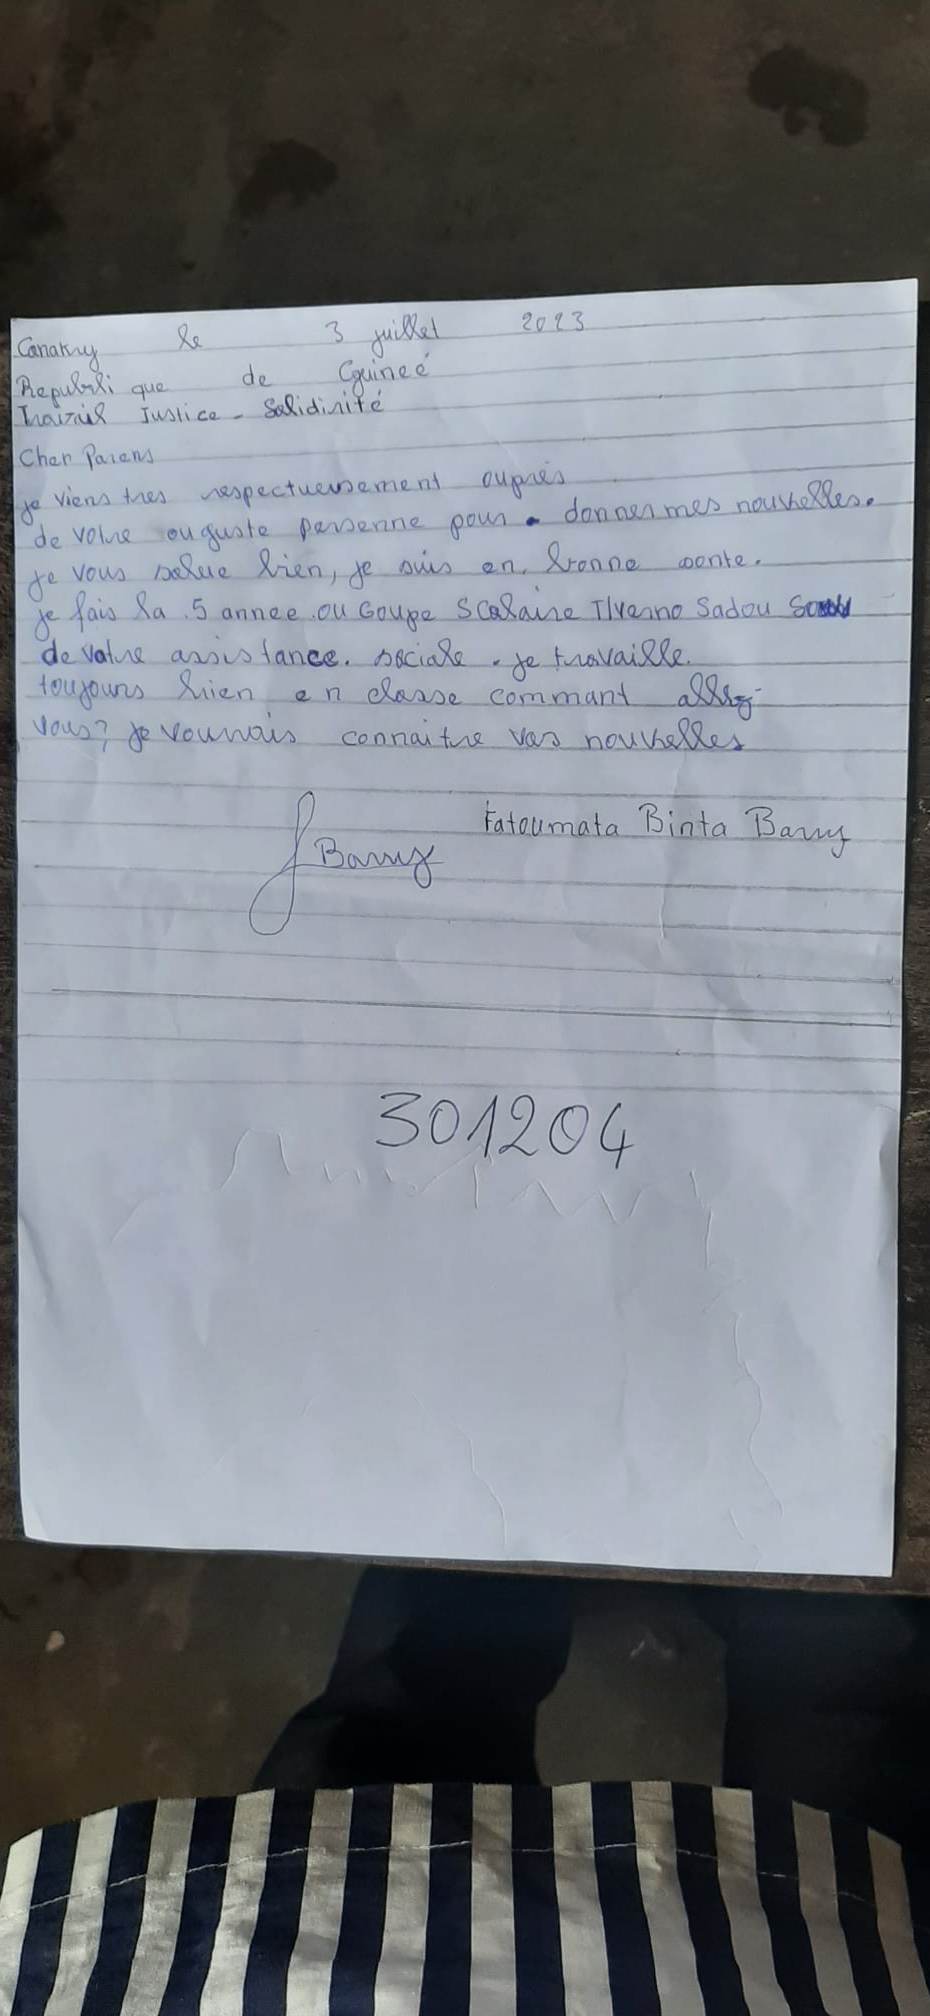 Conakry le 3 juillet 2023
Republi que de Guineé
Justice - Solidirité
Cher Parens
je viens tres respectueusement ouprés
de votre ouguste personne pour donner mes nouvelles.
je vous salue bien, je suis en bonne sonte.
je fais la 5 annee ou Goupe Scolaire Tlverno Sadou
de votre assistance. sociale. je travaille.
toujours bien en classe commant allez
vous? je vourrais connaitre vos nouvelles
Fatoumata Binta Barry
Barry
301204